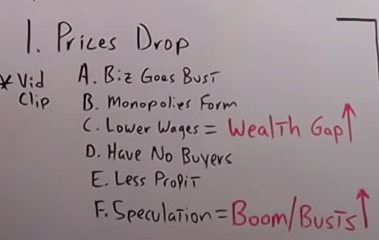 1. Prices Drop
* Vid Clip
A. Biz Goes Bust
B. Monopolies Form
C. Lower Wages = Wealth Gap ↑
D. Have No Buyers
E. Less Profit
F. Speculation = Boom/Busts ↑